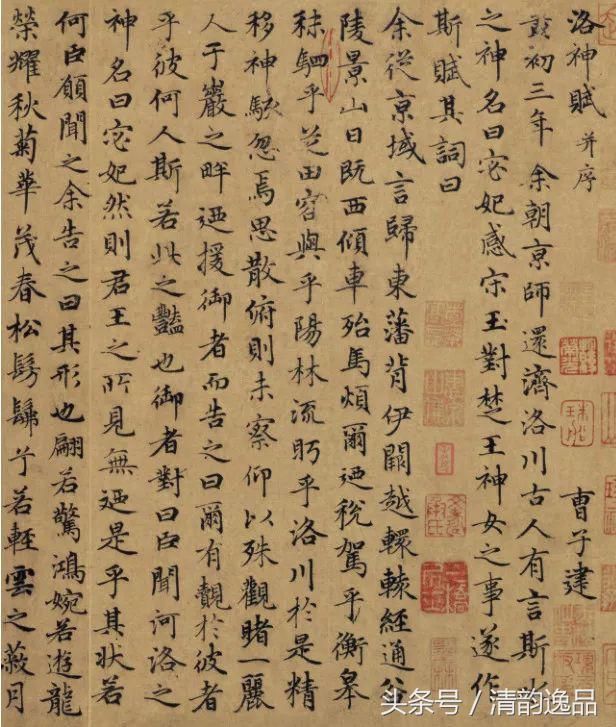 洛神賦 并序 曹子建
黃初三年余朝京師還濟洛川古人有言斯水
之神名曰宓妃感宋玉對楚王神女之事遂作
斯賦其詞曰
余從京域言歸東藩背伊闕越轘轅經通谷
陵景山日既西傾車殆馬煩爾迺稅駕乎衡皋
秣駟乎芝田容與乎陽林流眄乎洛川於是精
移神駭忽焉思散俯則未察仰以殊觀睹一麗
人于巖之畔迺援御者而告之曰爾有覿於彼者
乎彼何人斯若此之豔也御者對曰臣聞河洛之
神名曰宓妃然則君王之所見無迺是乎其狀若
何臣願聞之余告之曰其形也翩若驚鴻婉若遊龍
榮耀秋菊華茂春松髣髴兮若輕雲之蔽月
头条号 / 清韵逸品